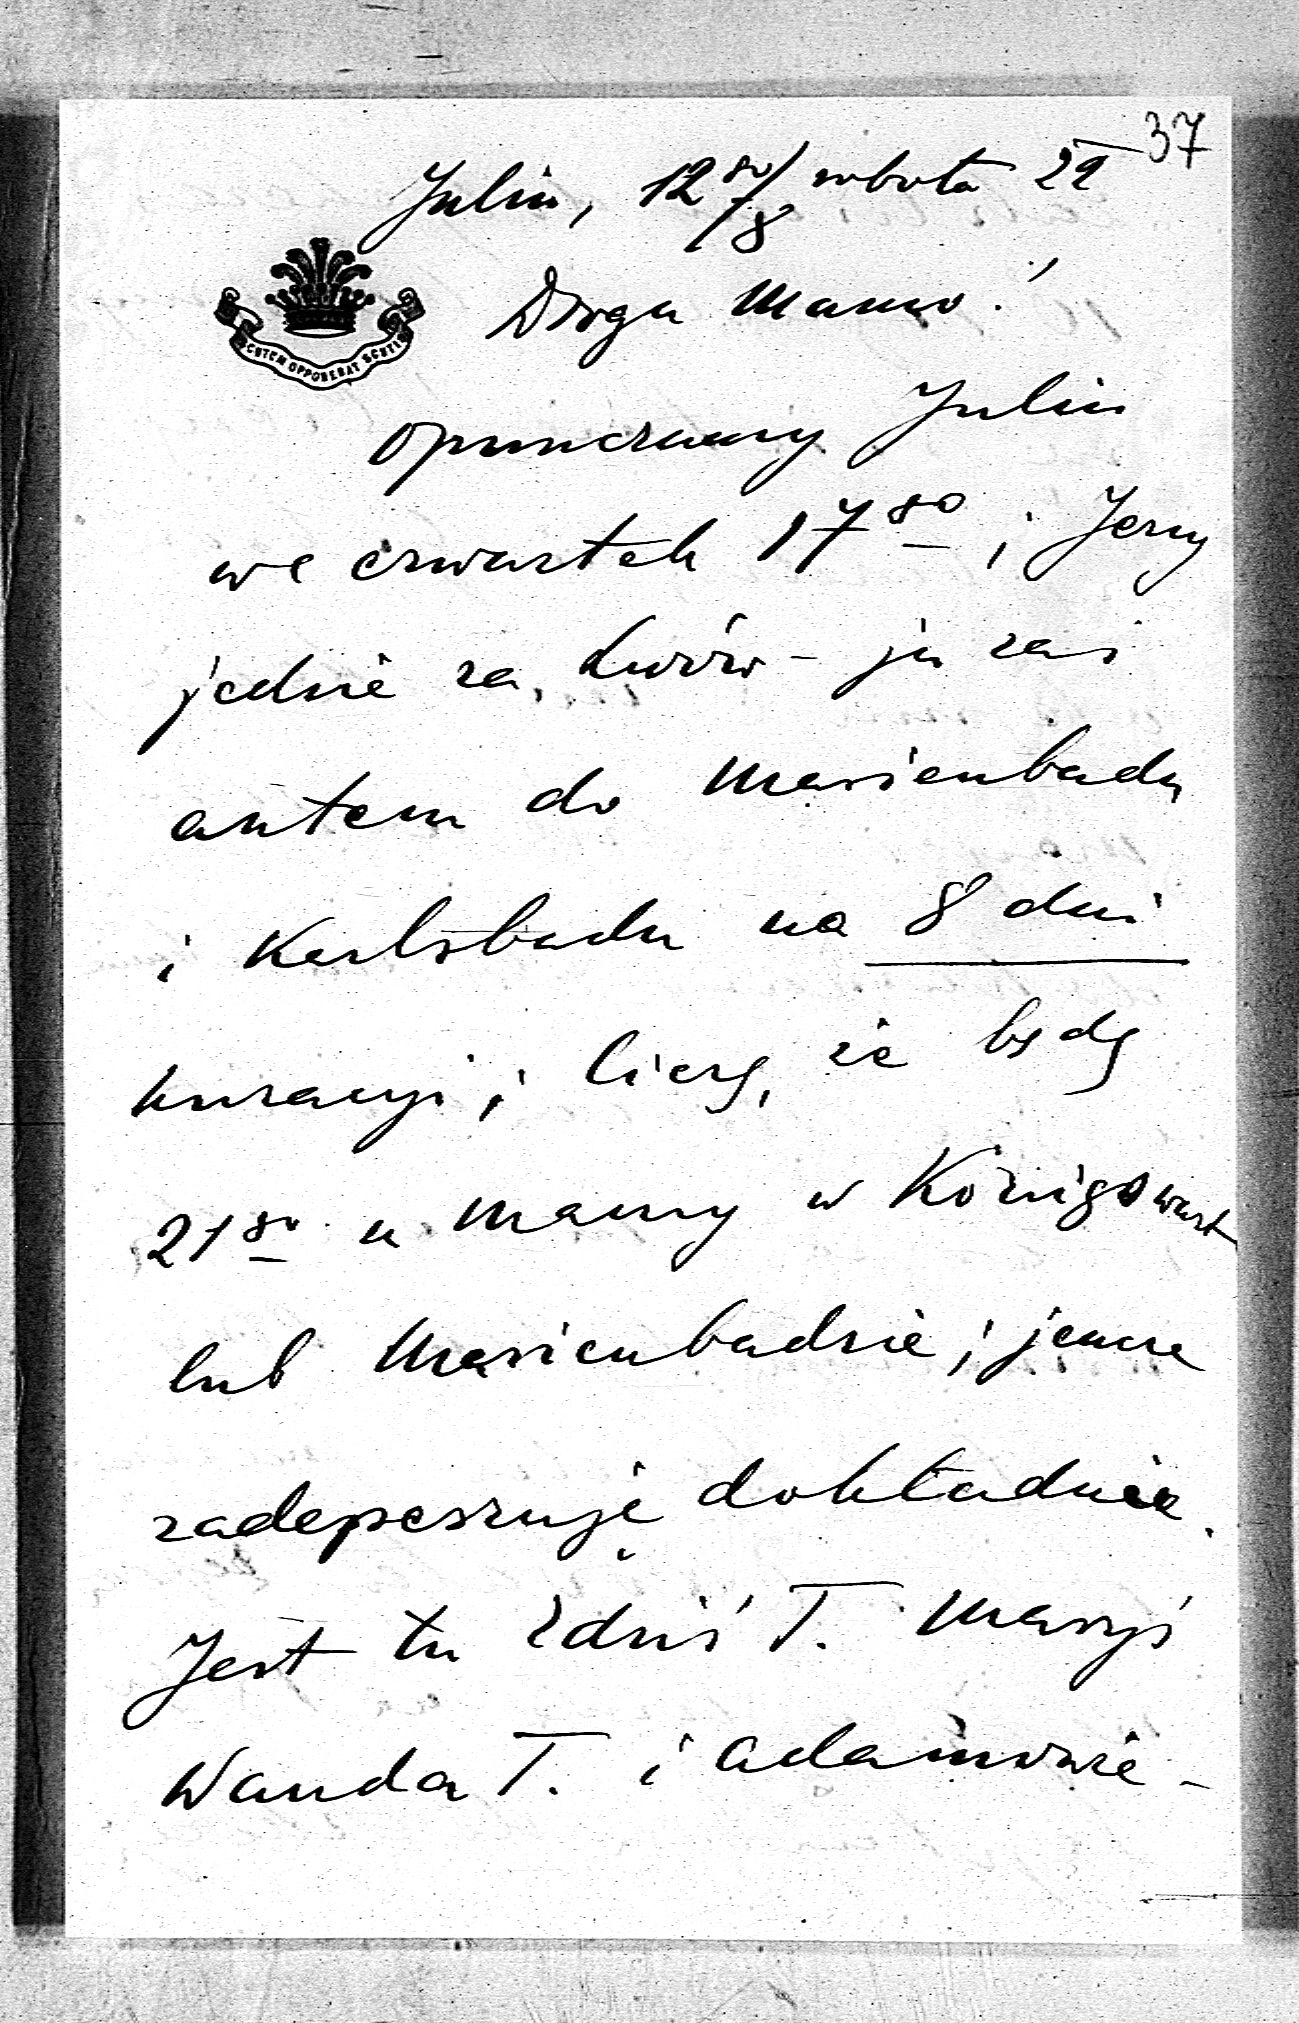 37
Julin, 12go/8 sobota 22
Droga Mamo!
SCUTEM OPPONEBAT SCUTIS
Opuszczamy Julin
we czwartek 17go; Jerzy
jedzie za Lwów – ja zaś
autem do Marienbadu
i Karlsbadu na 8 dni
kuracyi; liczę, że będę
21go u Mamy w Königswart
lub Marienbadzie; jeszcze
zadepeszuję dokładnie.
Jest tu Zdziś T. Maryś
Wanda T. i Adamowie –